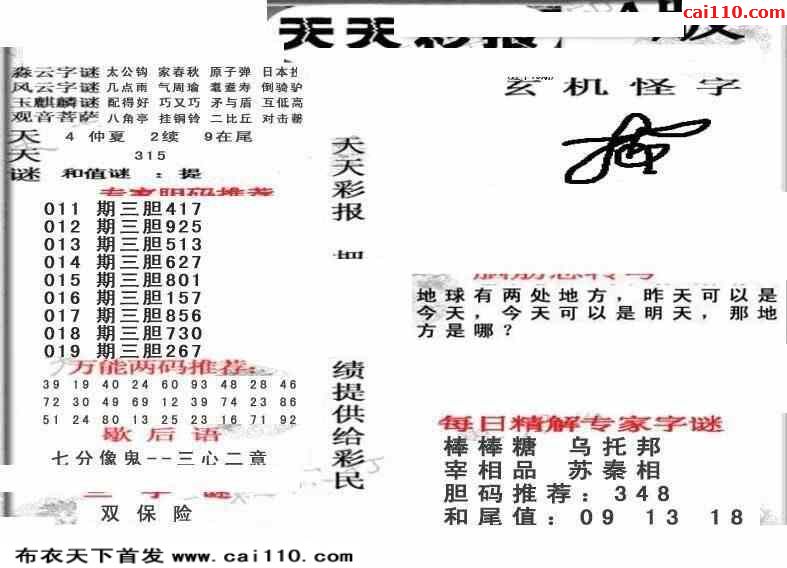 cai110.com
天天彩报
森云字谜 太公钩 家春秋 原子弹
风云字谜 几点雨 气周瑜 耄耋寿 倒骑驴
玉麒麟谜 配得好 巧又巧 矛与盾 互低高
观音菩萨 八角亭 挂铜铃 二比丘
天 4 仲夏 2续 9在尾
天 315
谜 和值谜 : 提
专家胆码推荐
011 期三胆417
012 期三胆925
013 期三胆513
014 期三胆627
015 期三胆801
016 期三胆157
017 期三胆856
018 期三胆730
019 期三胆267
万能两码推荐:
39 19 40 24 60 93 48 28 46
72 30 49 69 12 39 74 23 86
51 24 80 13 25 23 16 71 92
歇后语
七分像鬼--三心二意
三字谜
双保险
天天彩报
绩提供给彩民
玄机怪字
脑筋急转弯
地球有两处地方,昨天可以是
今天,今天可以是明天,那地
方是哪?
每日精解专家字谜
棒棒糖 乌托邦
宰相品 苏秦相
胆码推荐:348
和尾值:09 13 18
布衣天下首发 www.cai110.com